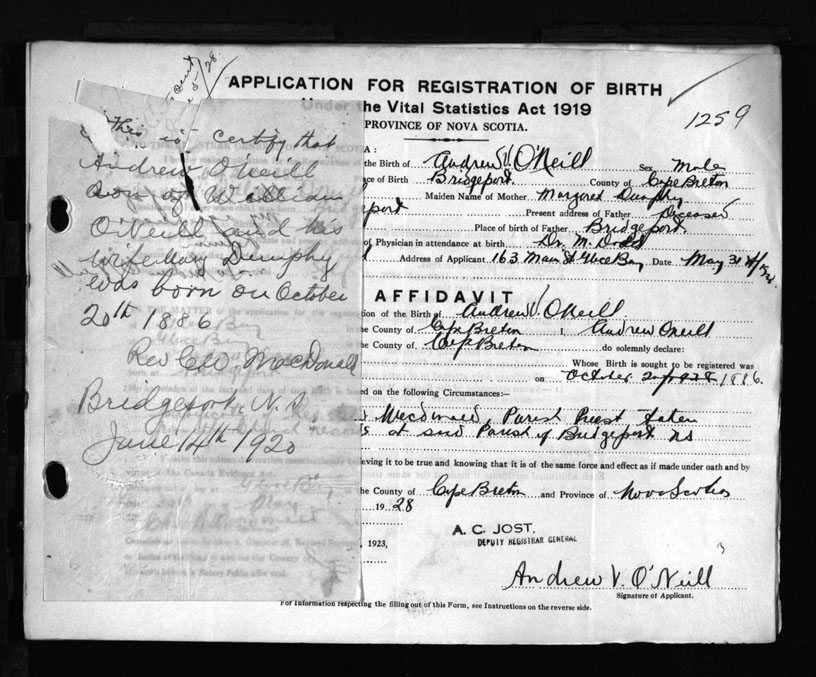 APPLICATION FOR REGISTRATION OF BIRTH
Under the Vital Statistics Act 1919
1259
PROVINCE OF NOVA SCOTIA.
This is to certify that
Andrew O'Neill
son of William
O'Neill and his
wife Mary Dumphy
was born on October
20th 1886
Rev C. W. MacDonald
Bridgeport, N.S
June 14th 1920
the Birth of Andrew V. O'Neill Sex Male
ace of Birth Bridgeport. County of Cape Breton
Maiden Name of Mother Margaret Dumphy
port Present address of Father Deceased
Place of birth of Father Bridgeport.
of Physician in attendance at birth Dr. M. Dodd
Address of Applicant 163 Main St Glace Bay Date May 31
AFFIDAVIT
tion of the Birth of Andrew V. O'Neill
he County of Cape Breton I, Andrew O'neill
he County of Cape Breton do solemnly declare:
Whose Birth is sought to be registered was
on October 1886.
d on the following Circumstances:
Macdonald, Parish Priest taken
at said Parish of Bridgeport NS
eving it to be true and knowing that it is of the same force and effect as if made under oath and by
he County of Cape Breton and Province of Nova Scotia
1928
A. C. JOST,
DEPUTY REGISTRAR GENERAL
, 1923,
Andrew V. O'Neill
Signature of Applicant.
For Information respecting the filling out of this Form, see Instructions on the reverse side.